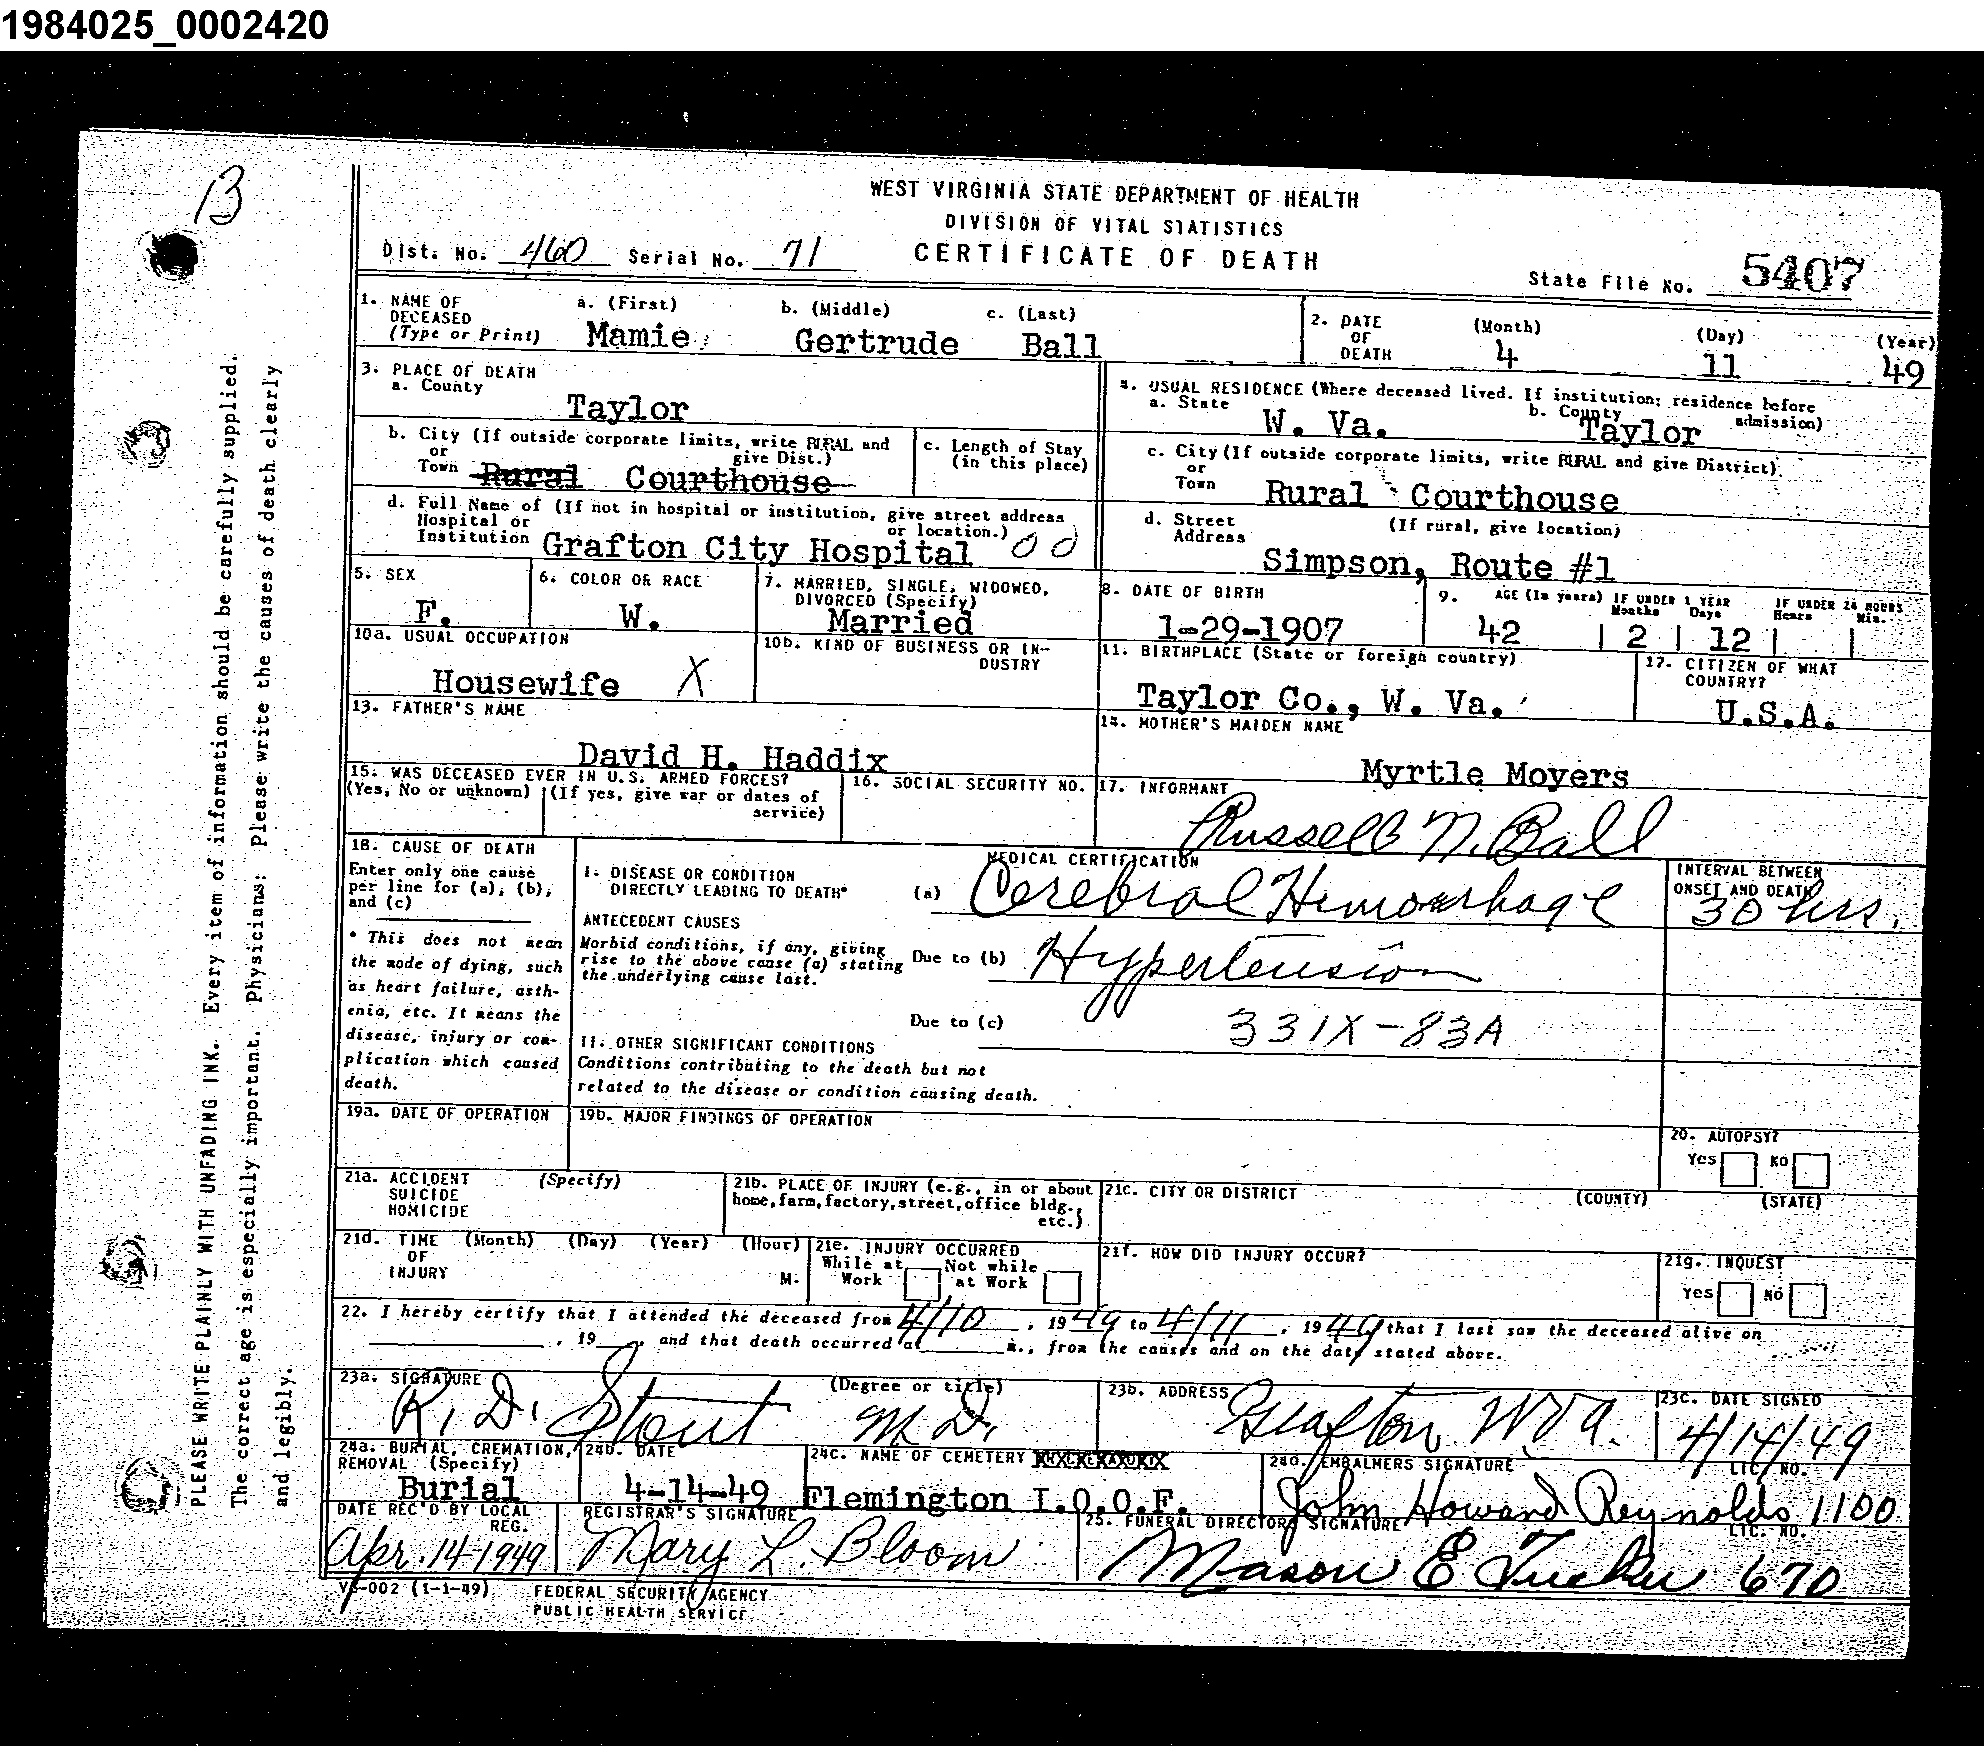 1984025_0002420
B
WEST VIRGINIA STATE DEPARTMENT OF HEALTH
DIVISION OF VITAL STATISTICS
Dist. No. 460 Serial No. 71 CERTIFICATE OF DEATH
State File No. 5407
1. NAME OF DECEASED (Type or Print) a. (First) Mamie b. (Middle) Gertrude c. (Last) Ball
2. DATE OF DEATH (Month) 4 (Day) 11 (Year) 49
3. PLACE OF DEATH
a. County Taylor
4. USUAL RESIDENCE (Where deceased lived. If institution: residence before admission)
a. State W. Va. b. County Taylor
b. City (If outside corporate limits, write RURAL and give Dist.)
or Town Rural Courthouse
c. Length of Stay (in this place)
c. City (If outside corporate limits, write RURAL and give District)
or Town Rural Courthouse
d. Full Name of (If not in hospital or institution, give street address or location.)
Hospital or Institution Grafton City Hospital 00
d. Street Address (If rural, give location)
Simpson, Route #1
5. SEX F.
6. COLOR OR RACE W.
7. MARRIED, SINGLE, WIDOWED, DIVORCED (Specify) Married
8. DATE OF BIRTH 1-29-1907
9. AGE (In years) 42 IF UNDER 1 YEAR Months 2 Days 12 IF UNDER 24 HOURS Hours Min.
10a. USUAL OCCUPATION Housewife X
10b. KIND OF BUSINESS OR INDUSTRY
11. BIRTHPLACE (State or foreign country) Taylor Co., W. Va.
12. CITIZEN OF WHAT COUNTRY? U.S.A.
13. FATHER'S NAME David H. Haddix
14. MOTHER'S MAIDEN NAME Myrtle Moyers
15. WAS DECEASED EVER IN U.S. ARMED FORCES?
(Yes, No or unknown) (If yes, give war or dates of service)
16. SOCIAL SECURITY NO.
17. INFORMANT Russell N. Ball
18. CAUSE OF DEATH
Enter only one cause per line for (a), (b), and (c)
* This does not mean the mode of dying, such as heart failure, asthenia, etc. It means the disease, injury or complication which caused death.
MEDICAL CERTIFICATION
INTERVAL BETWEEN ONSET AND DEATH
I. DISEASE OR CONDITION DIRECTLY LEADING TO DEATH* (a) Cerebral Hemorrhage 30 hrs.
ANTECEDENT CAUSES
Morbid conditions, if any, giving rise to the above cause (a) stating the underlying cause last.
Due to (b) Hypertension
Due to (c) 331X-83A
II. OTHER SIGNIFICANT CONDITIONS
Conditions contributing to the death but not related to the disease or condition causing death.
19a. DATE OF OPERATION
19b. MAJOR FINDINGS OF OPERATION
20. AUTOPSY?
Yes NO
21a. ACCIDENT SUICIDE HOMICIDE (Specify)
21b. PLACE OF INJURY (e.g., in or about home, farm, factory, street, office bldg., etc.)
21c. CITY OR DISTRICT (COUNTY) (STATE)
21d. TIME OF INJURY (Month) (Day) (Year) (Hour) M.
21e. INJURY OCCURRED
While at Work Not while at Work
21f. HOW DID INJURY OCCUR?
21g. INQUEST
Yes NO
22. I hereby certify that I attended the deceased from 4/10, 1949 to 4/11, 1949 that I last saw the deceased alive on
, 19 , and that death occurred at m., from the causes and on the date stated above.
23a. SIGNATURE (Degree or title) R. D. Stout M.D.
23b. ADDRESS Grafton W Va.
23c. DATE SIGNED 4/14/49
24a. BURIAL, CREMATION, REMOVAL (Specify) Burial
24b. DATE 4-14-49
24c. NAME OF CEMETERY Flemington I.O.O.F.
24d. EMBALMERS SIGNATURE LIC. NO. John Howard Reynolds 1100
DATE REC'D BY LOCAL REG. Apr. 14-1949
REGISTRAR'S SIGNATURE Mary L. Bloom
25. FUNERAL DIRECTORS SIGNATURE LIC. NO. Mason E Tucker 670
VS-002 (1-1-49) FEDERAL SECURITY AGENCY
PUBLIC HEALTH SERVICE
PLEASE WRITE PLAINLY WITH UNFADING INK. Every item of information should be carefully supplied.
The correct age is especially important. Physicians: Please write the causes of death clearly
and legibly.